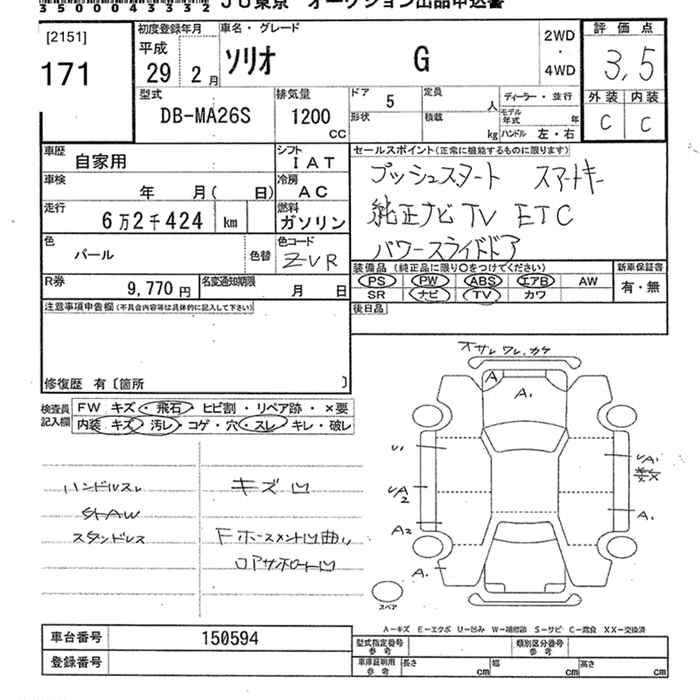 350004 3332 JU東京 オークション出品申込書
[2151]
171
初度登録年月
平成
29 2月
車名・グレード
ソリオ G
2WD
・
4WD
評価点
3,5
外装 内装
C C
型式
DB-MA26S
排気量
1200
CC
ドア 5
定員 人
形状
積載 kg
ディーラー・並行
モデル年式 年
ハンドル 左・右
車歴 自家用
シフト IAT
車検 年 月( 日)
冷房 AC
走行 6万2千424 km
燃料 ガソリン
色 パール 色替
色コード ZVR
R券 9,770円
名変通知期限 月 日
セールスポイント(正常に機能するものに限ります)
プッシュスタート スマートキー
純正ナビ TV ETC
パワースライドドア
装備品(純正品に限り○をつけてください)
PS PW ABS エアB AW
SR ナビ TV カワ
新車保証書
有・無
後日品
注意事項申告欄(不具合内容等は具体的に記入して下さい)
修復歴 有〔箇所 〕
検査員記入欄
FW キズ・飛石・ヒビ割・リペア跡・×要
内装 キズ・汚レ・コゲ・穴・スレ・キレ・破レ
ハンドルスレ
スタンドレス
キズ凹
コアサポート凹
A
A1
U1
UA2
A2
A1
UA1
A1
スペア
A−キズ E−エクボ U−凹み W−補修跡 S−サビ C−腐食 XX−交換済
車台番号 150594
登録番号
型式指定番号 参考
類別区分番号 参考
車庫証明用 参考 長さ cm 幅 cm 高さ cm